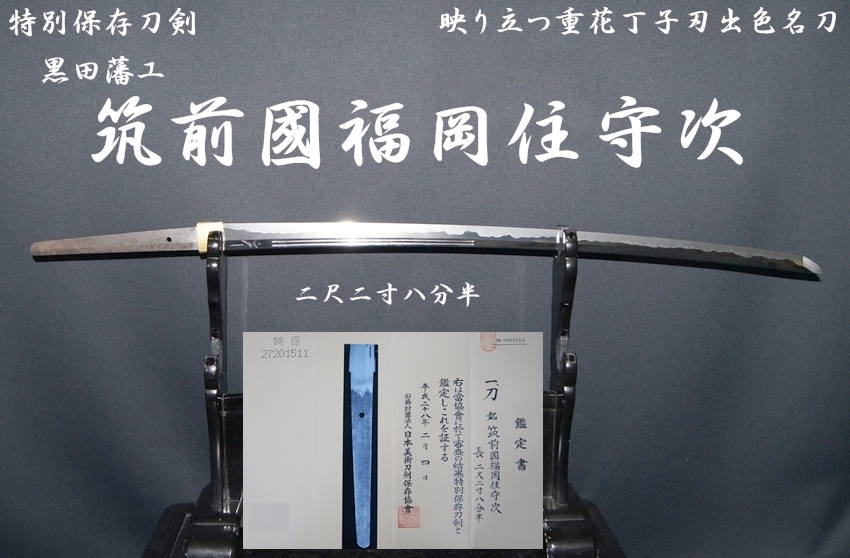 特別保存刀剣
映り立つ重花丁子刃出色名刀
黒田藩工
筑前國福岡住守次
二尺二寸八分半
特保
27201511
鑑定書
一、刀 銘 筑前国福岡住守次
長 二尺二寸八分半
右は當協會に於て審査の結果特別保存刀剣と
鑑定しこれを証する
平成二十八年 二月 四日
公益財団法人 日本美術刀剣保存協會